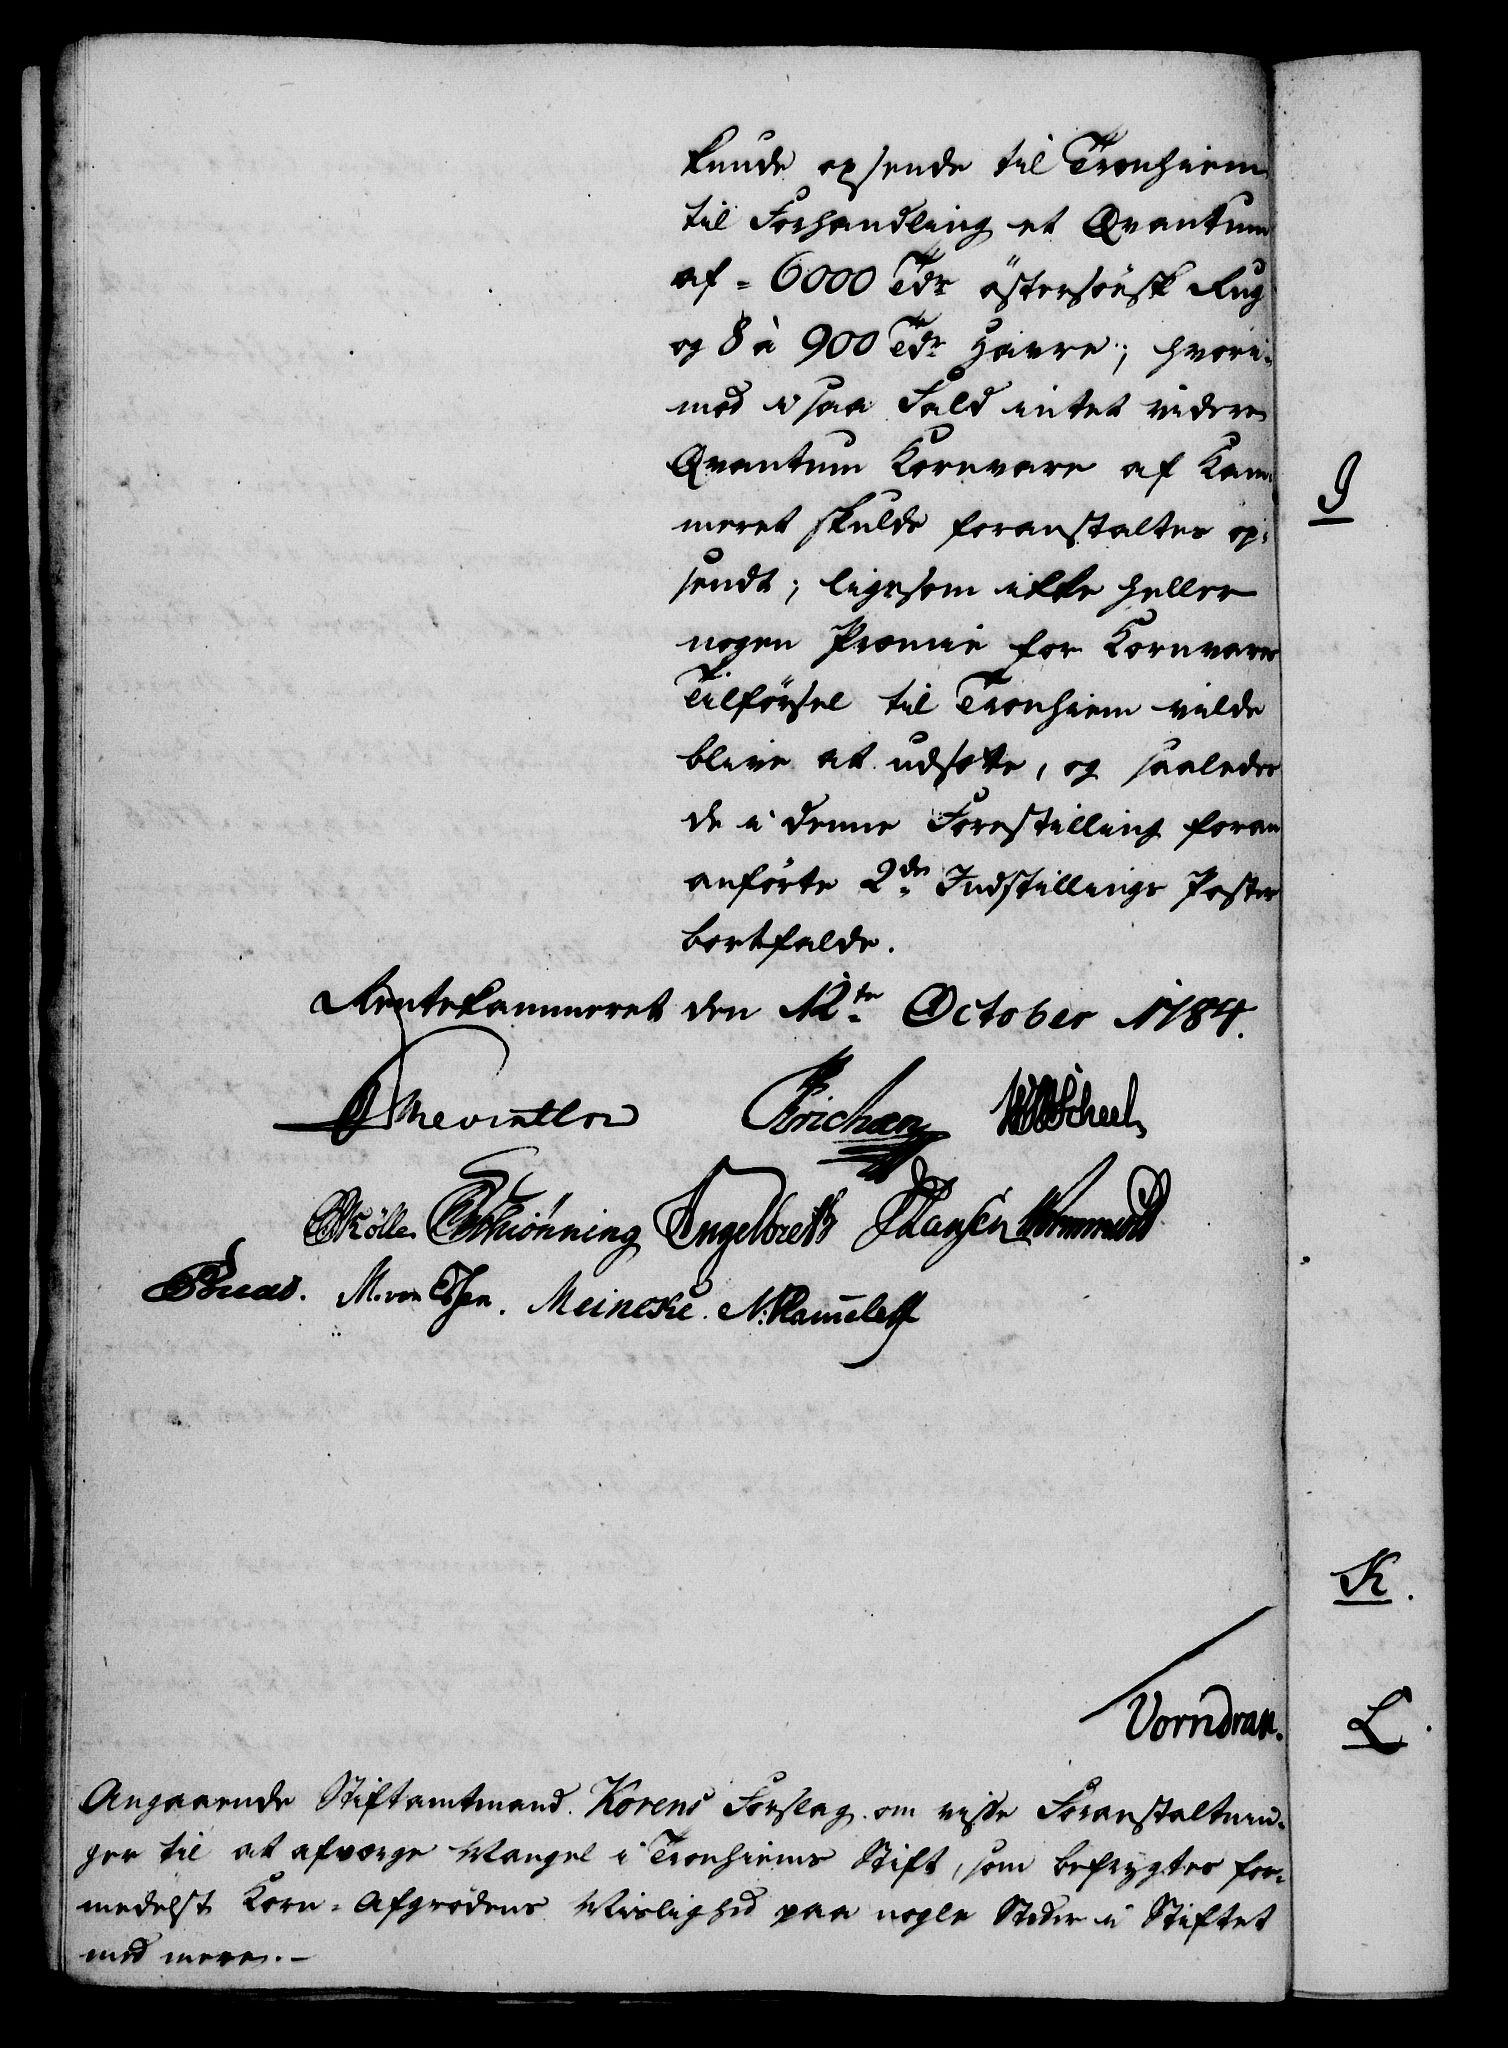 kunde opsende til Tronhiem
til Forhandling et Qvantum
af = 6000 Tdr östersöesk Rug
og 8 à 900 Tdr Havre; hvori-
mod i saa Fald intet videre
Qvantum Kornvare af Kam-
meret skulde foranstaltes op-
sendt; ligesom ikke heller
nogen Præmie for Kornvares
Tilförsel til Tronhiem vilde
blive at udsætte, og saaledes
de i denne Forestilling foran
anförte 2de Indstillings Poster
bortfalde.
Rentekammeret den 12te October 1784.
Reventlow Erichsen Scheel
Kölle Schiönning Engelbreth Hansen Wormskiold
M. von Essen. Meincke. N. Hammeleff
Vorndran.
Angaaende Stiftamtmand Korens Forslag om visse Foranstaltnin-
ger til at afværge Mangel i Tronhiems Stift, som befrygtes for-
medelst Korn-Afgrödens Mislighed paa nogle Steder i Stiftet
med mere. -
I
K.
L.